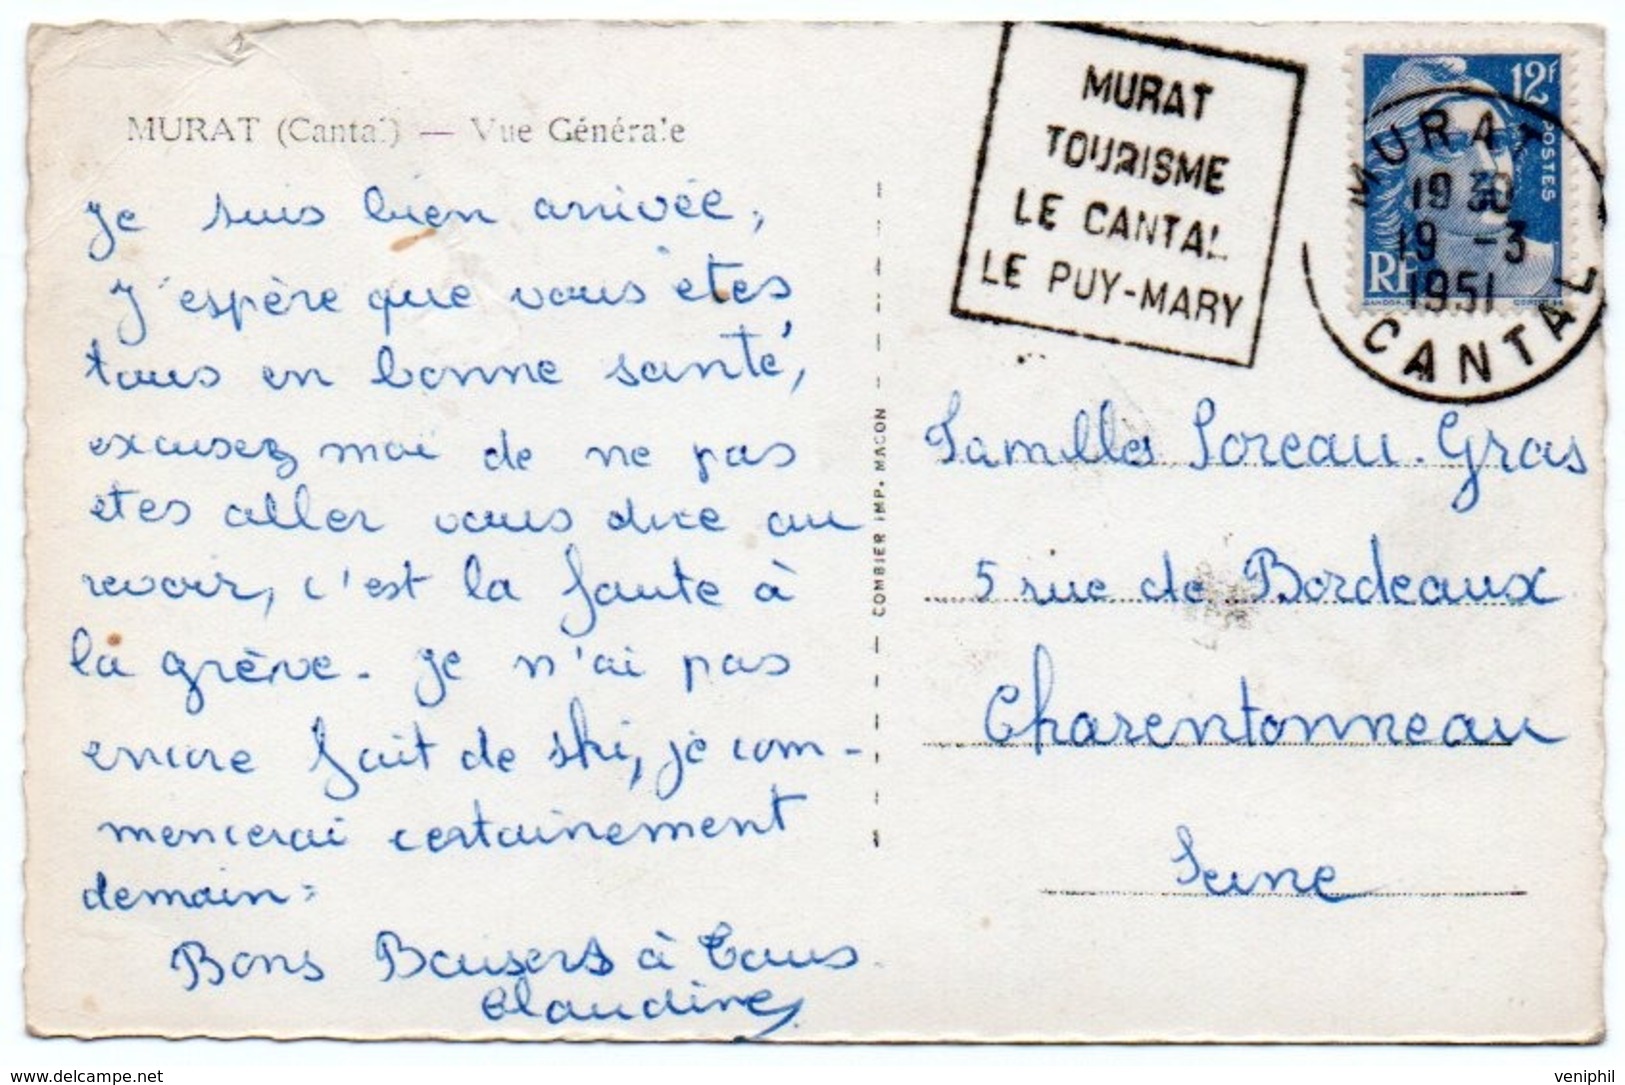 MURAT (Cantal) — Vue Générale
Je suis bien arrivée,
J'espère que vous êtes
tous en bonne santé,
excusez moi de ne pas
etes aller vous dire au
revoir, c'est la faute à
la grève. Je n'ai pas
encore fait de ski, je com-
mencerai certainement
demain.
Bons Baisers à Tous.
Claudine
COMBIER IMP. MACON
MURAT
TOURISME
LE CANTAL
LE PUY-MARY
12F
POSTES
RF
MURAT
19 30
19 -3
1951
CANTAL
Familles Loreau. Gras
5 rue de Bordeaux
Charentonneau
Seine
delcampe.net
veniphil